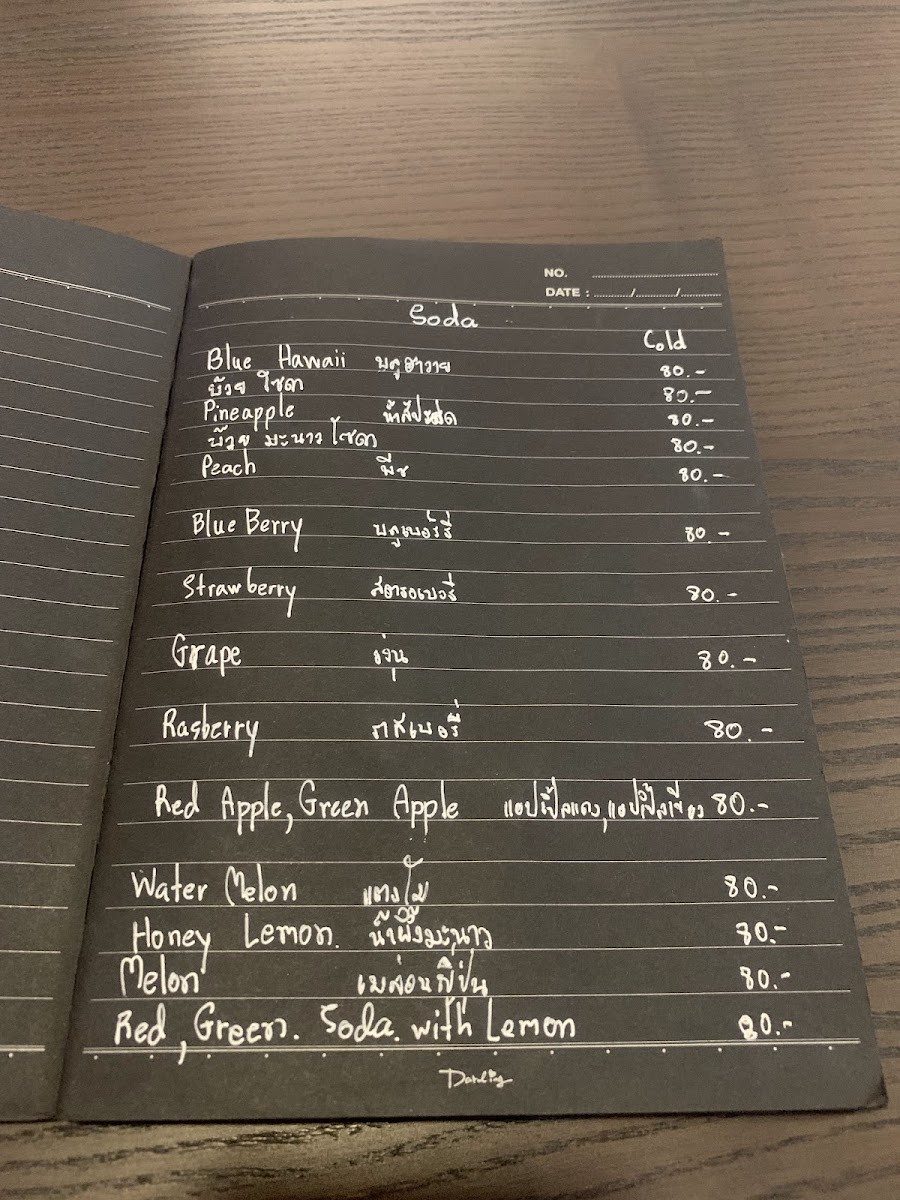 NO.
DATE : / /
Soda
Cold
Blue Hawaii บลูฮาวาย 80.-
บ๊วย โซดา 80.-
Pineapple น้ำสัปะรด 80.-
บ๊วย มะนาว โซดา 80.-
Peach พีช 80.-
Blue Berry บลูเบอร์รี่ 80.-
Strawberry สตรอเบอรี่ 80.-
Grape องุ่น 80.-
Rasberry ราสเบอรี่ 80.-
Red Apple, Green Apple แอปเปิ้ลแดง, แอปเปิ้ลเขียว 80.-
Water Melon แตงโม 80.-
Honey Lemon. น้ำผึ้งมะนาว 80.-
Melon เมล่อนญี่ปุ่น 80.-
Red, Green. Soda. with Lemon 80.-
Darling